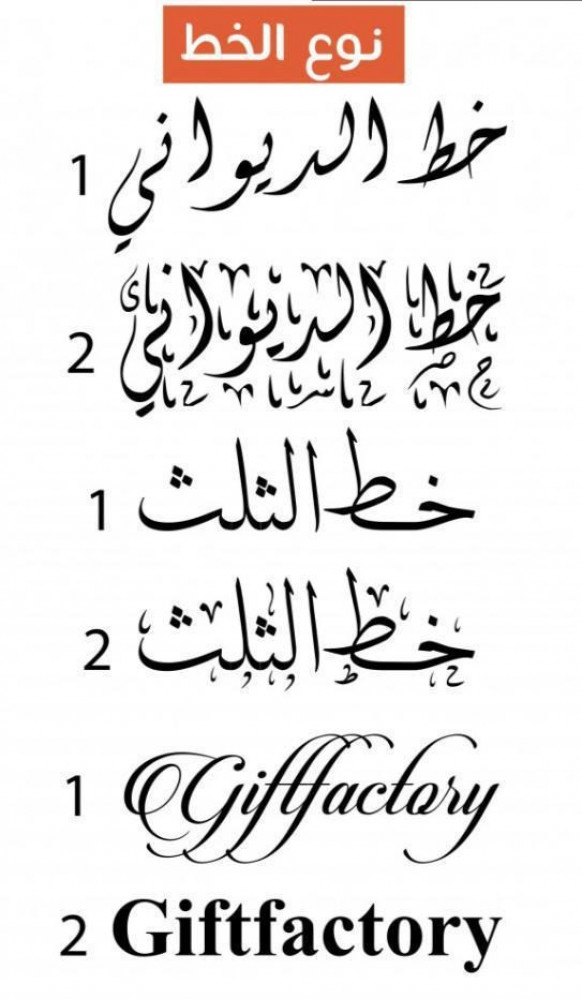 نوع الخط
خط الديواني 1
خط الديواني 2
خط الثلث 1
خط الثلث 2
1 Giftfactory
2 Giftfactory